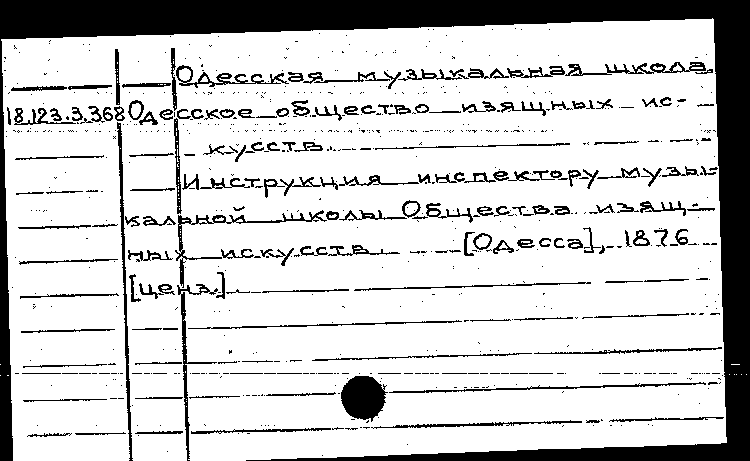 Одесская музыкальная школа.
18.123.3.368 Одесское общество изящных ис-
кусств.
Инструкция инспектору музы-
кальной школы Общества изящ-
ных искусств. [Одесса], 1876
[ценз.].